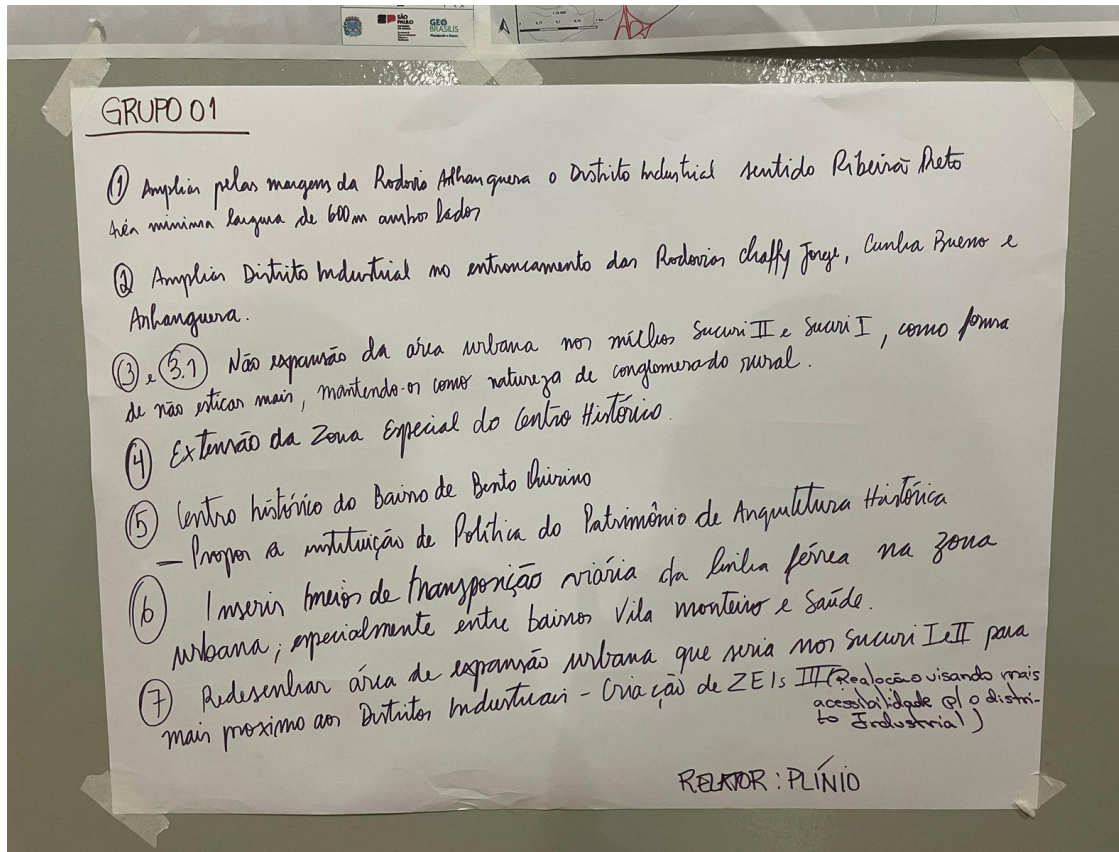 SÃO PAULO
GEO BRASILIS
GRUPO 01
① Ampliar pelas margens da Rodovia Anhanguera o Distrito Industrial sentido Ribeirão Preto
área minima largura de 600m ambos lados
② Ampliar Distrito Industrial no entroncamento das Rodovias Chaffy Jorge, Cunha Bueno e
Anhanguera.
③ e ③.1 Não expansão da área urbana nos núcleos Sucuri II e Sucuri I, como forma
de não esticar mais, mantendo-os como natureza de conglomerado rural.
④ Extensão da Zona Especial do Centro Histórico.
⑤ Centro histórico do Bairro de Bento Quirino
— Propor a instituição de Política do Patrimônio de Arquitetura Histórica
⑥ Inserir meios de transposição viária da linha férrea na zona
urbana, especialmente entre bairros Vila Monteiro e Saúde.
⑦ Redesenhar área de expansão urbana que seria nos Sucuri I e II para
mais proximo aos Distritos Industriais - Criação de ZEIs III (Realocação visando mais
acessibilidade p/ o distri-
to Industrial)
RELATOR: PLÍNIO